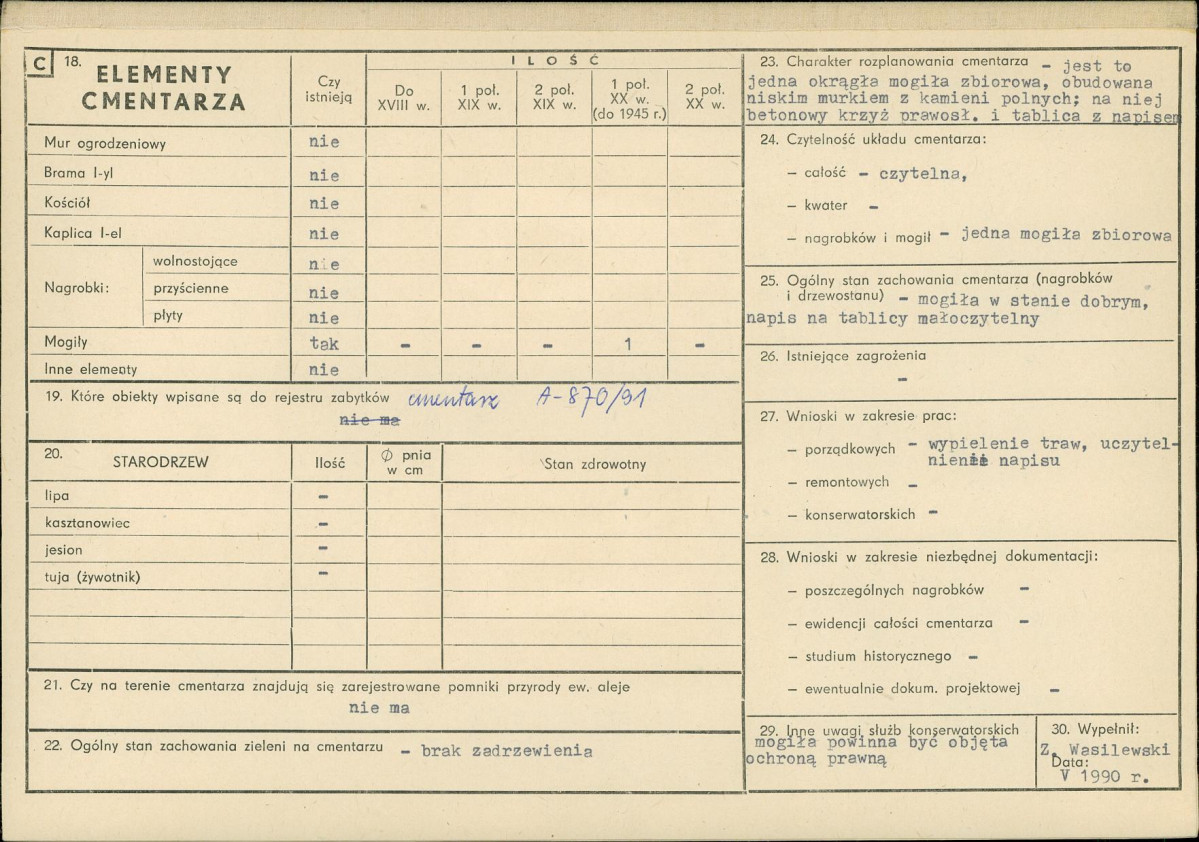 C 18. ELEMENTY CMENTARZA
Czy istnieją
ILOŚĆ
Do XVIII w.
1 poł. XIX w.
2 poł. XIX w.
1 poł. XX w. (do 1945 r.)
2 poł. XX w.
Mur ogrodzeniowy nie
Brama I-yl nie
Kościół nie
Kaplica I-el nie
Nagrobki:
wolnostojące nie
przyścienne nie
płyty nie
Mogiły tak - - - 1 -
Inne elementy nie
19. Które obiekty wpisane są do rejestru zabytków cmentarz A-870/91
nie ma
20. STARODRZEW Ilość Ø pnia w cm Stan zdrowotny
lipa -
kasztanowiec -
jesion -
tuja (żywotnik) -
21. Czy na terenie cmentarza znajdują się zarejestrowane pomniki przyrody ew. aleje
nie ma
22. Ogólny stan zachowania zieleni na cmentarzu - brak zadrzewienia
23. Charakter rozplanowania cmentarza - jest to
jedna okrągła mogiła zbiorowa, obudowana
niskim murkiem z kamieni polnych; na niej
betonowy krzyż prawosł. i tablica z napisem
24. Czytelność układu cmentarza:
- całość - czytelna,
- kwater -
- nagrobków i mogił - jedna mogiła zbiorowa
25. Ogólny stan zachowania cmentarza (nagrobków
i drzewostanu) - mogiła w stanie dobrym,
napis na tablicy małoczytelny
26. Istniejące zagrożenia
-
27. Wnioski w zakresie prac:
- porządkowych - wypielenie traw, uczytel-
nienie napisu
- remontowych -
- konserwatorskich -
28. Wnioski w zakresie niezbędnej dokumentacji:
- poszczególnych nagrobków -
- ewidencji całości cmentarza -
- studium historycznego -
- ewentualnie dokum. projektowej -
29. Inne uwagi służb konserwatorskich
mogiła powinna być objęta
ochroną prawną
30. Wypełnił:
Z. Wasilewski
Data:
V 1990 r.